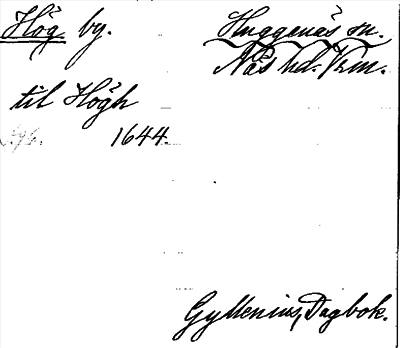 Hög by. Huggenäs sn.
Näs hd. Vrm.
til Högh
1644.
Gyllenius, Dagbok.